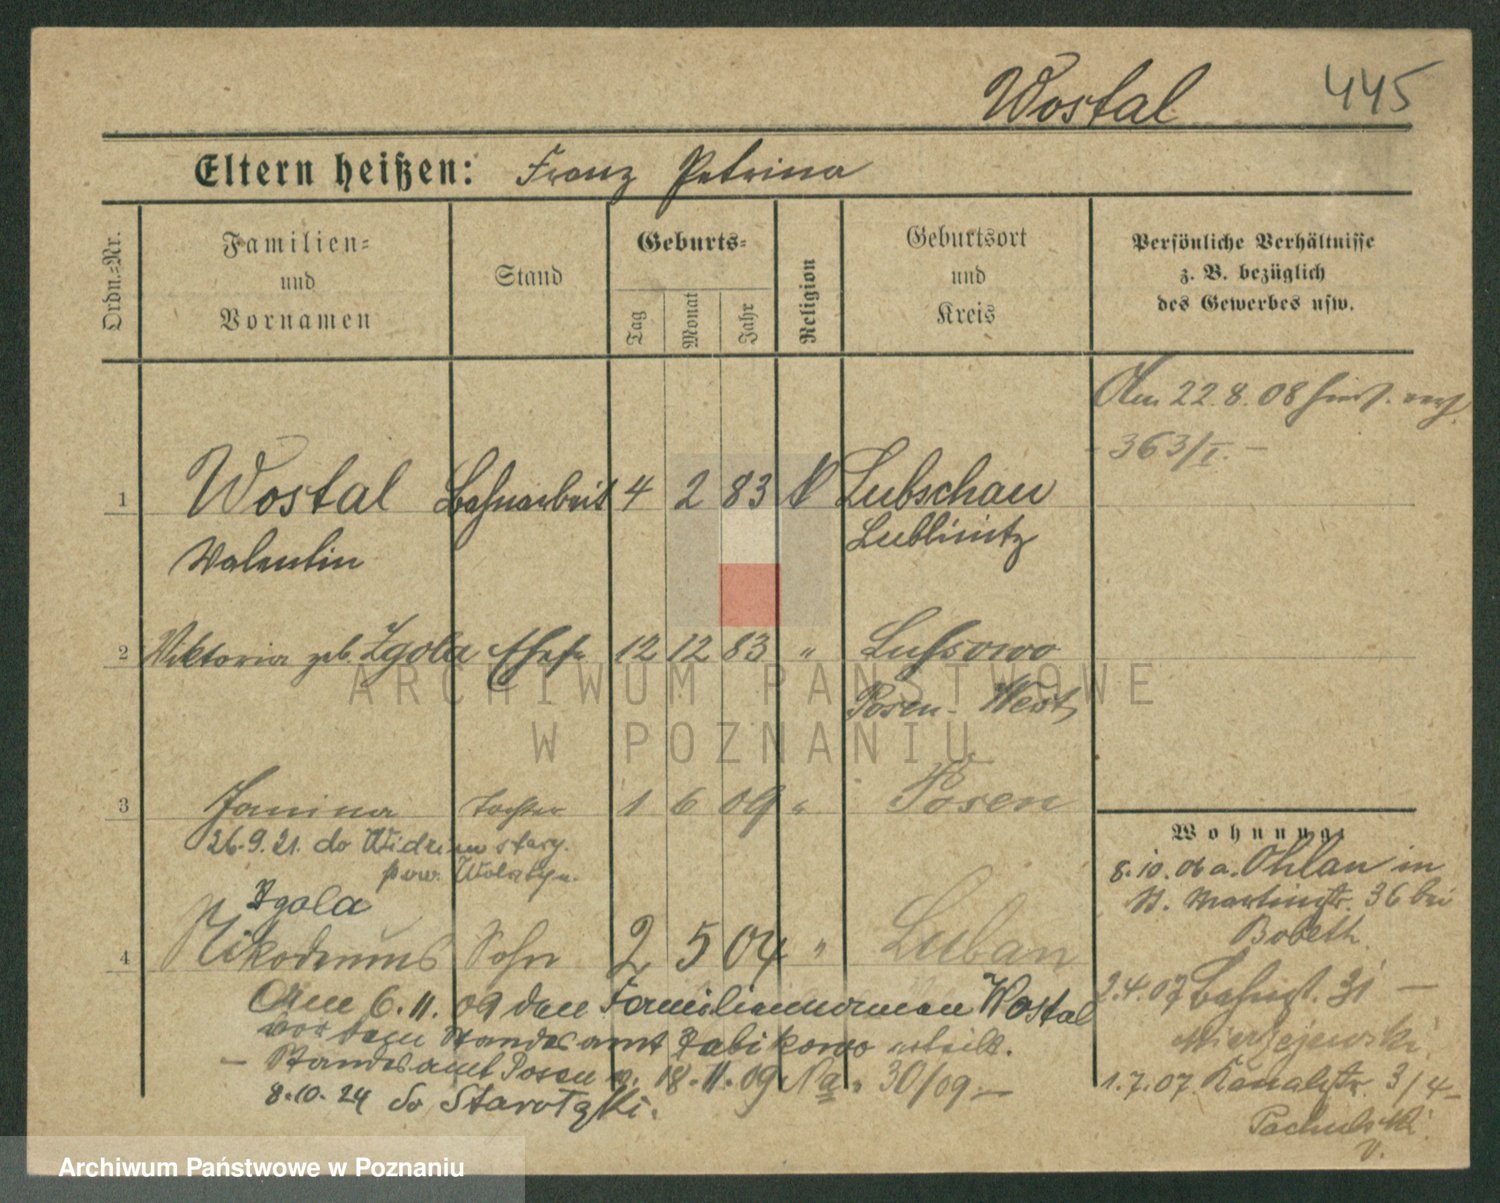 Wostal 445
Eltern heißen: Franz Petrina
Ordn.=Nr.
Familien=
und
Vornamen
Stand
Geburts=
Tag
Monat
Jahr
Religion
Geburtsort
und
Kreis
Persönliche Verhältnisse
z. B. bezüglich
des Gewerbes usw.
Am 22.8.08
- 363/I. -
1 Wostal Bahnarbeit 4 2 83 K Lubschau
Valentin Lublinitz
2 Viktoria geb. Zgola Ehefr 12 12 83 " Lussowo
Posen-West
3 Janina Tochter 1 6 09 " Posen
26.9.21. do
pow. Wolsztyn.
Zgola
4 Nikodemus Sohn 2 5 04 " Luban
Am 6.11.09 den Familiennamen Wostal
vor dem Standesamt Zabikowo erteilt.
- Standesamt Posen v. 18.11.09 No. 30/09 -
8.10.24 do Starołęki.
Wohnung:
8.10.06 a. Ohlau in
St. Martinstr. 36 bei
Bobeth.
2.4.07 31 -
Mierzejewski.
1.7.07 Kanalstr. 3/4 -
Pachulski
ARCHIWUM PAŃSTWOWE
W POZNANIU
Archiwum Państwowe w Poznaniu